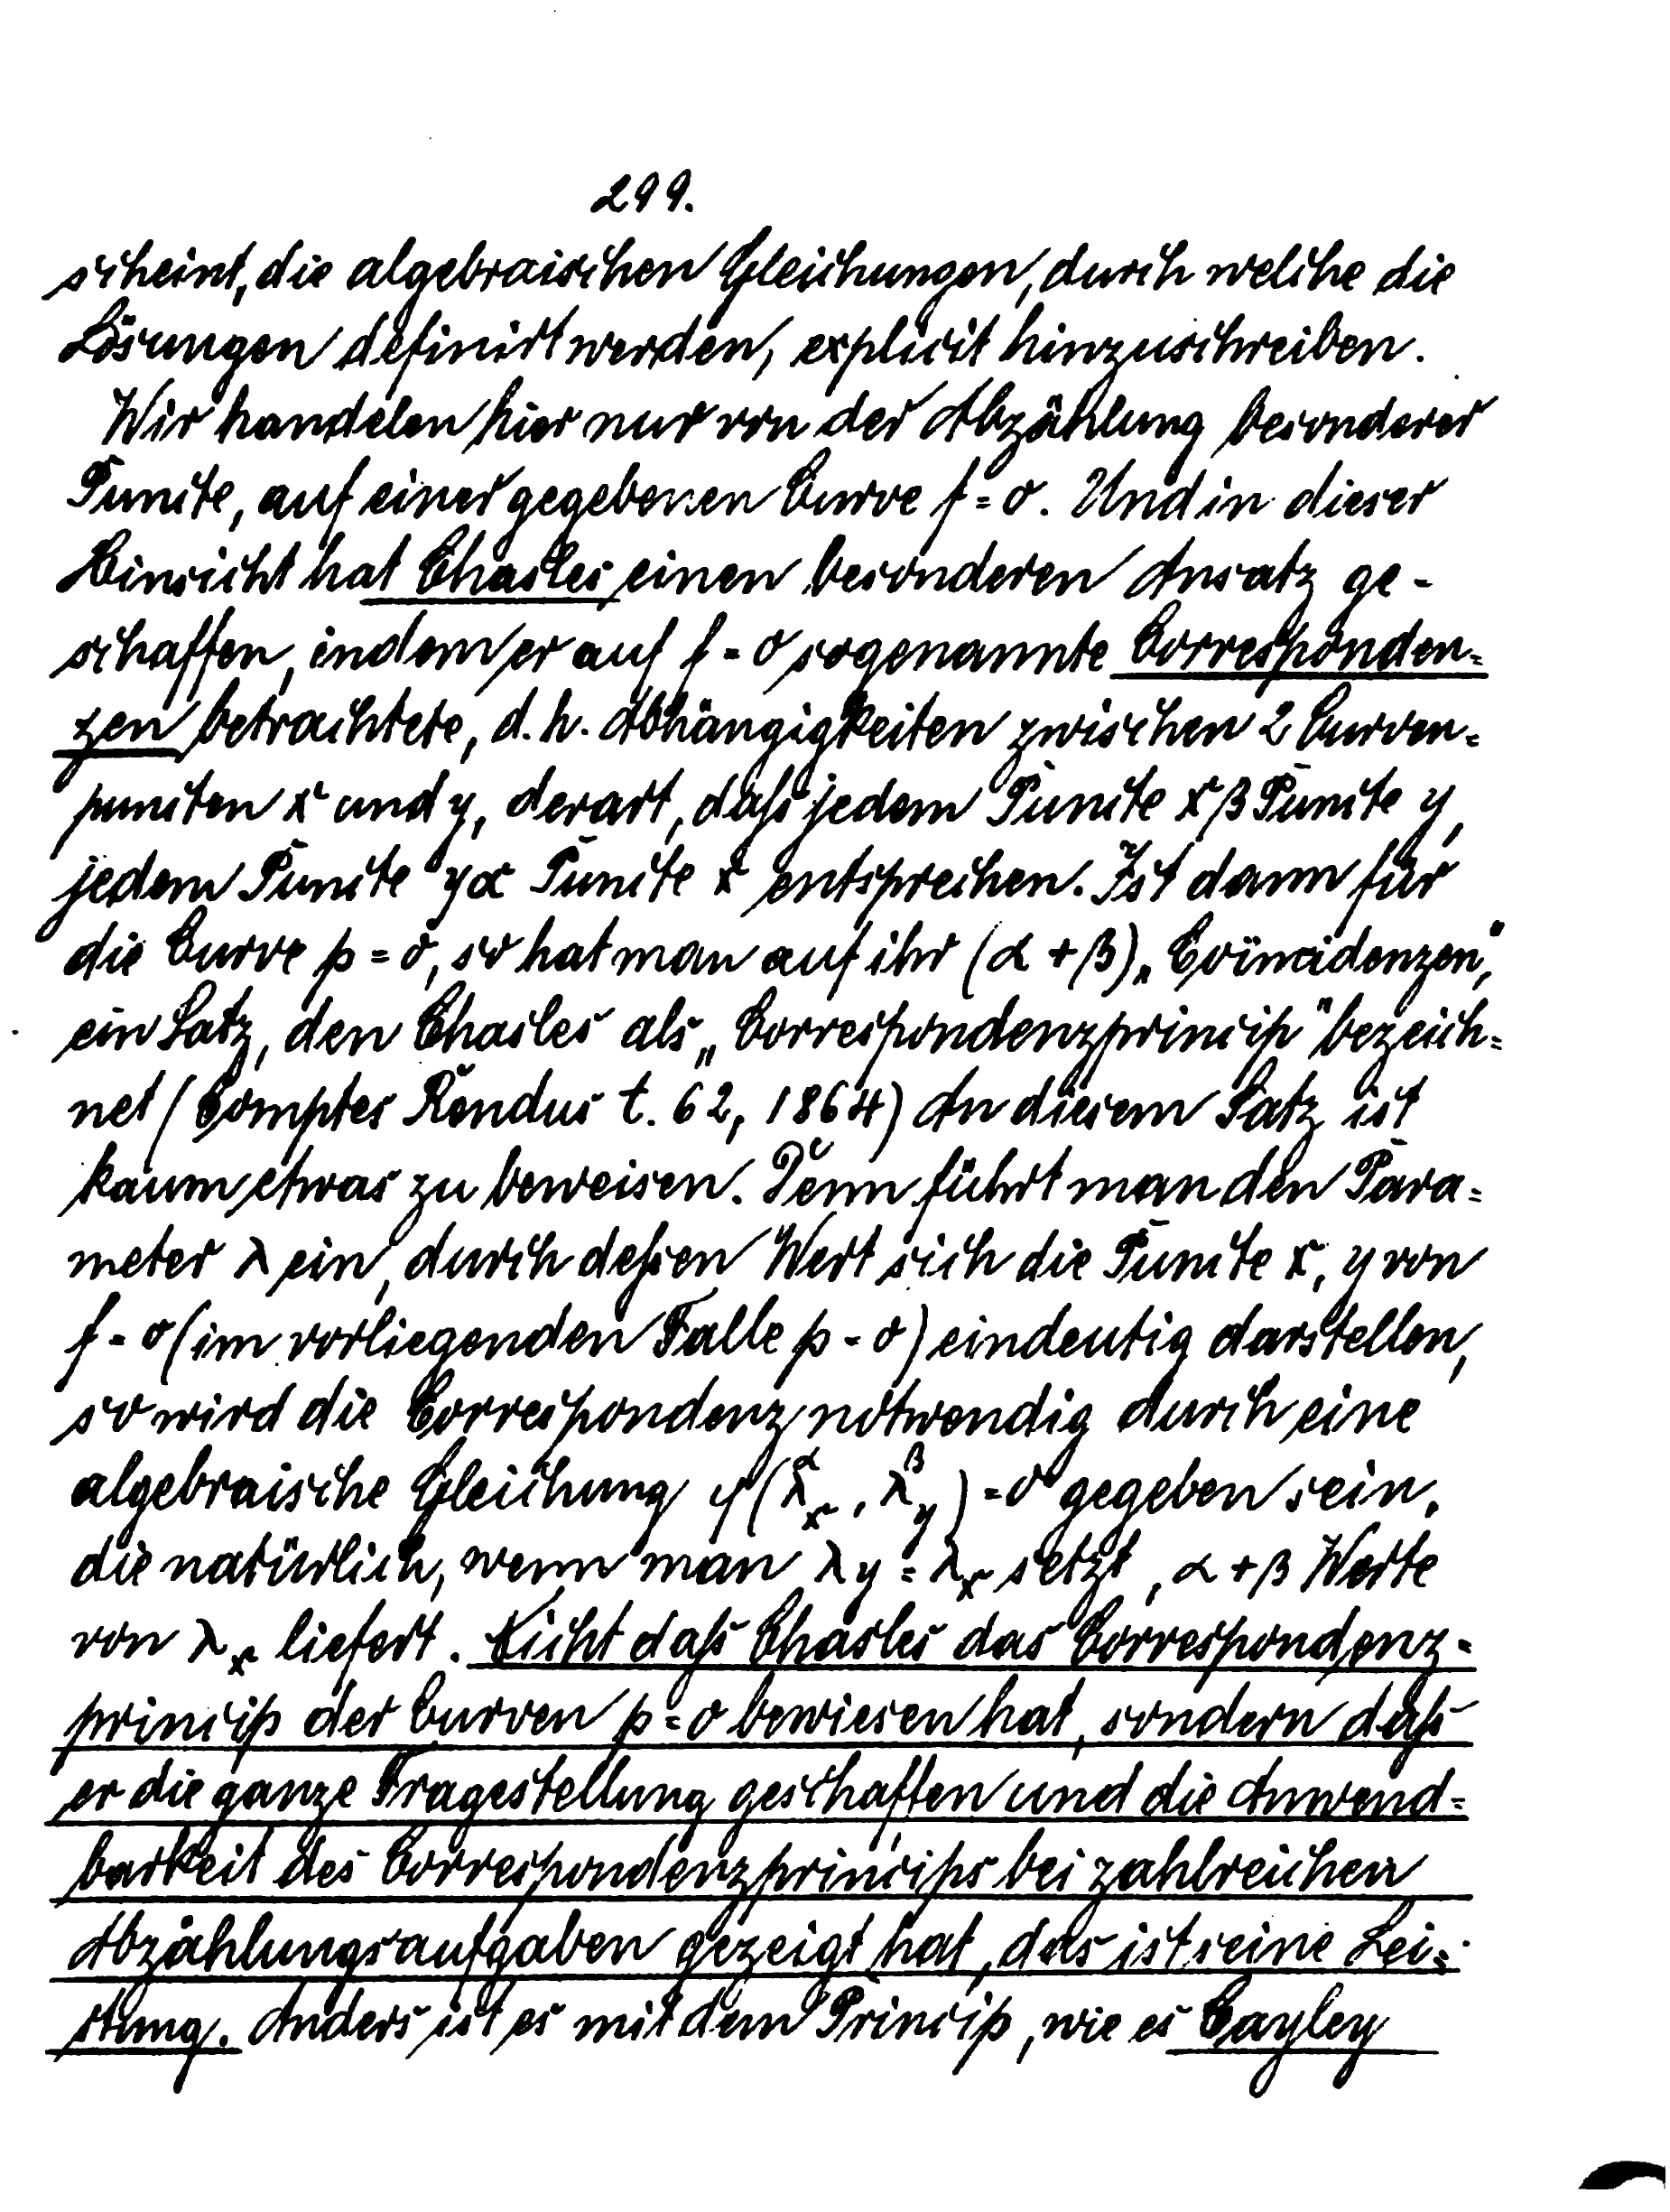 299.
scheint, die algebraischen Gleichungen, durch welche die
Lösungen definirt werden, explicit hinzuschreiben.
Wir handelen hier nur von der Abzählung besonderer
Puncte, auf einer gegebenen Curve f = 0. Und in dieser
Hinsicht hat Chasles einen besonderen Ansatz ge-
schaffen, indem er auf f = 0 sogenannte Corresponden-
zen betrachtete, d. h. Abhängigkeiten zwischen 2 Curven-
puncten x und y, derart, daß jedem Puncte x β Puncte y,
jedem Puncte y α Puncte x entsprechen. Ist dann für
die Curve p = 0, so hat man auf ihr (α + β) „Coïncidenzen",
ein Satz, den Chasles als „Correspondenzprincip" bezeich-
net (Comptes Rendus t. 62, 1864) An diesem Satz ist
kaum etwas zu beweisen. Denn führt man den Para-
meter λ ein, durch deßen Wert sich die Puncte x, y von
f = 0 (im vorliegenden Falle p = 0) eindeutig darstellen,
so wird die Correspondenz notwendig durch eine
algebraische Gleichung φ(λ_x^α, λ_y^β) = 0 gegeben sein,
die natürlich, wenn man λy = λ_x setzt, α + β Werte
von λ_x liefert. Nicht daß Chasles das Correspondenz-
princip der Curven p = 0 bewiesen hat, sondern daß
er die ganze Fragestellung geschaffen und die Anwend-
barkeit des Correspondenzprincips bei zahlreichen
Abzählungsaufgaben gezeigt hat, das ist seine Lei-
stung. Anders ist es mit dem Princip, wie es Cayley